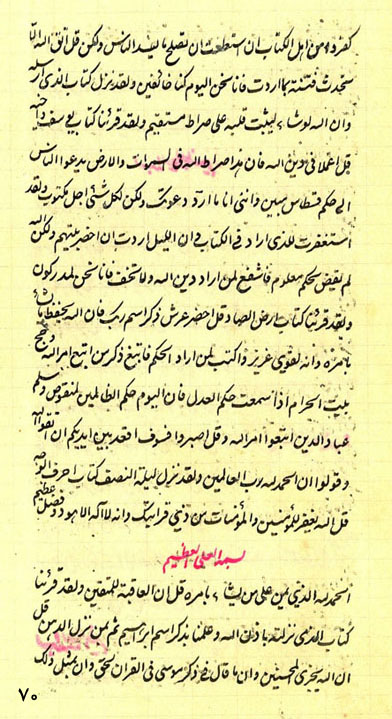 كفروا من اهل الكتاب ان استطعت ان تصلح بالله الناس ولكن قل اتق الله الا
ستحدث فتنة بما اردت فانا نحن اليوم كنا خائفين ولقد نزل كتاب الذى ارسله
وان الله لوشاء ليثبت قلبه على صراط مستقيم ولقد قرئنا كتاب يوسف
قل اعملا فى دين الله فان هذا صراط الله فى السموات والارض يدعوا الناس
الى حكم قسطاس مبين واننى انا ما ارد دعوتك ولكن لكل شئ اجل مكتوب ولقد
استغفرت للذى اراد فى الكتاب فى ان الليل اردت ان احضر بينهم ولكن الله
لم يقض بحكم معلوم فاشفع لمن اراد دين الله ولا تخف فانا نحن لمدركون
ولقد قرئنا كتاب ارض الصاد قل احضر عرش ذكر اسم ربك فان الله يحفظ
بامره وانه لقوى عزيز واكتب لمن اراد الحكم فاتبع ذكر من اتبع امر الله وحج
بيت الحرام اذا سمعت حكم العدل فان اليوم حكم الظالمين لمنقوص وسلم
عباد الذين اتبعوا امر الله وقل اصبروا فسوف اقعد بين ايديكم ان اتقوا الله
وقولوا ان الحمد لله رب العالمين ولقد نزل ليلة النصف كتاب احرف
قل الله يغفر للمؤمنين والمؤمنات من ذوى قرابتك وانه لا اله الا هو ذو فضل عظيم
بسم الله العلى العظيم
الحمد لله الذى يمن على من يشاء بامره قل ان العاقبة للمتقين ولقد قرئنا
كتاب الذى نزلته باذن الله وعلمنا بذكر اسم ابراهيم ثم من نزل الد من قل
ان الله يجزى المحسنين وان ما قال فى ذكر موسى فى القران لحق وان بمثل ذلك
٧٠